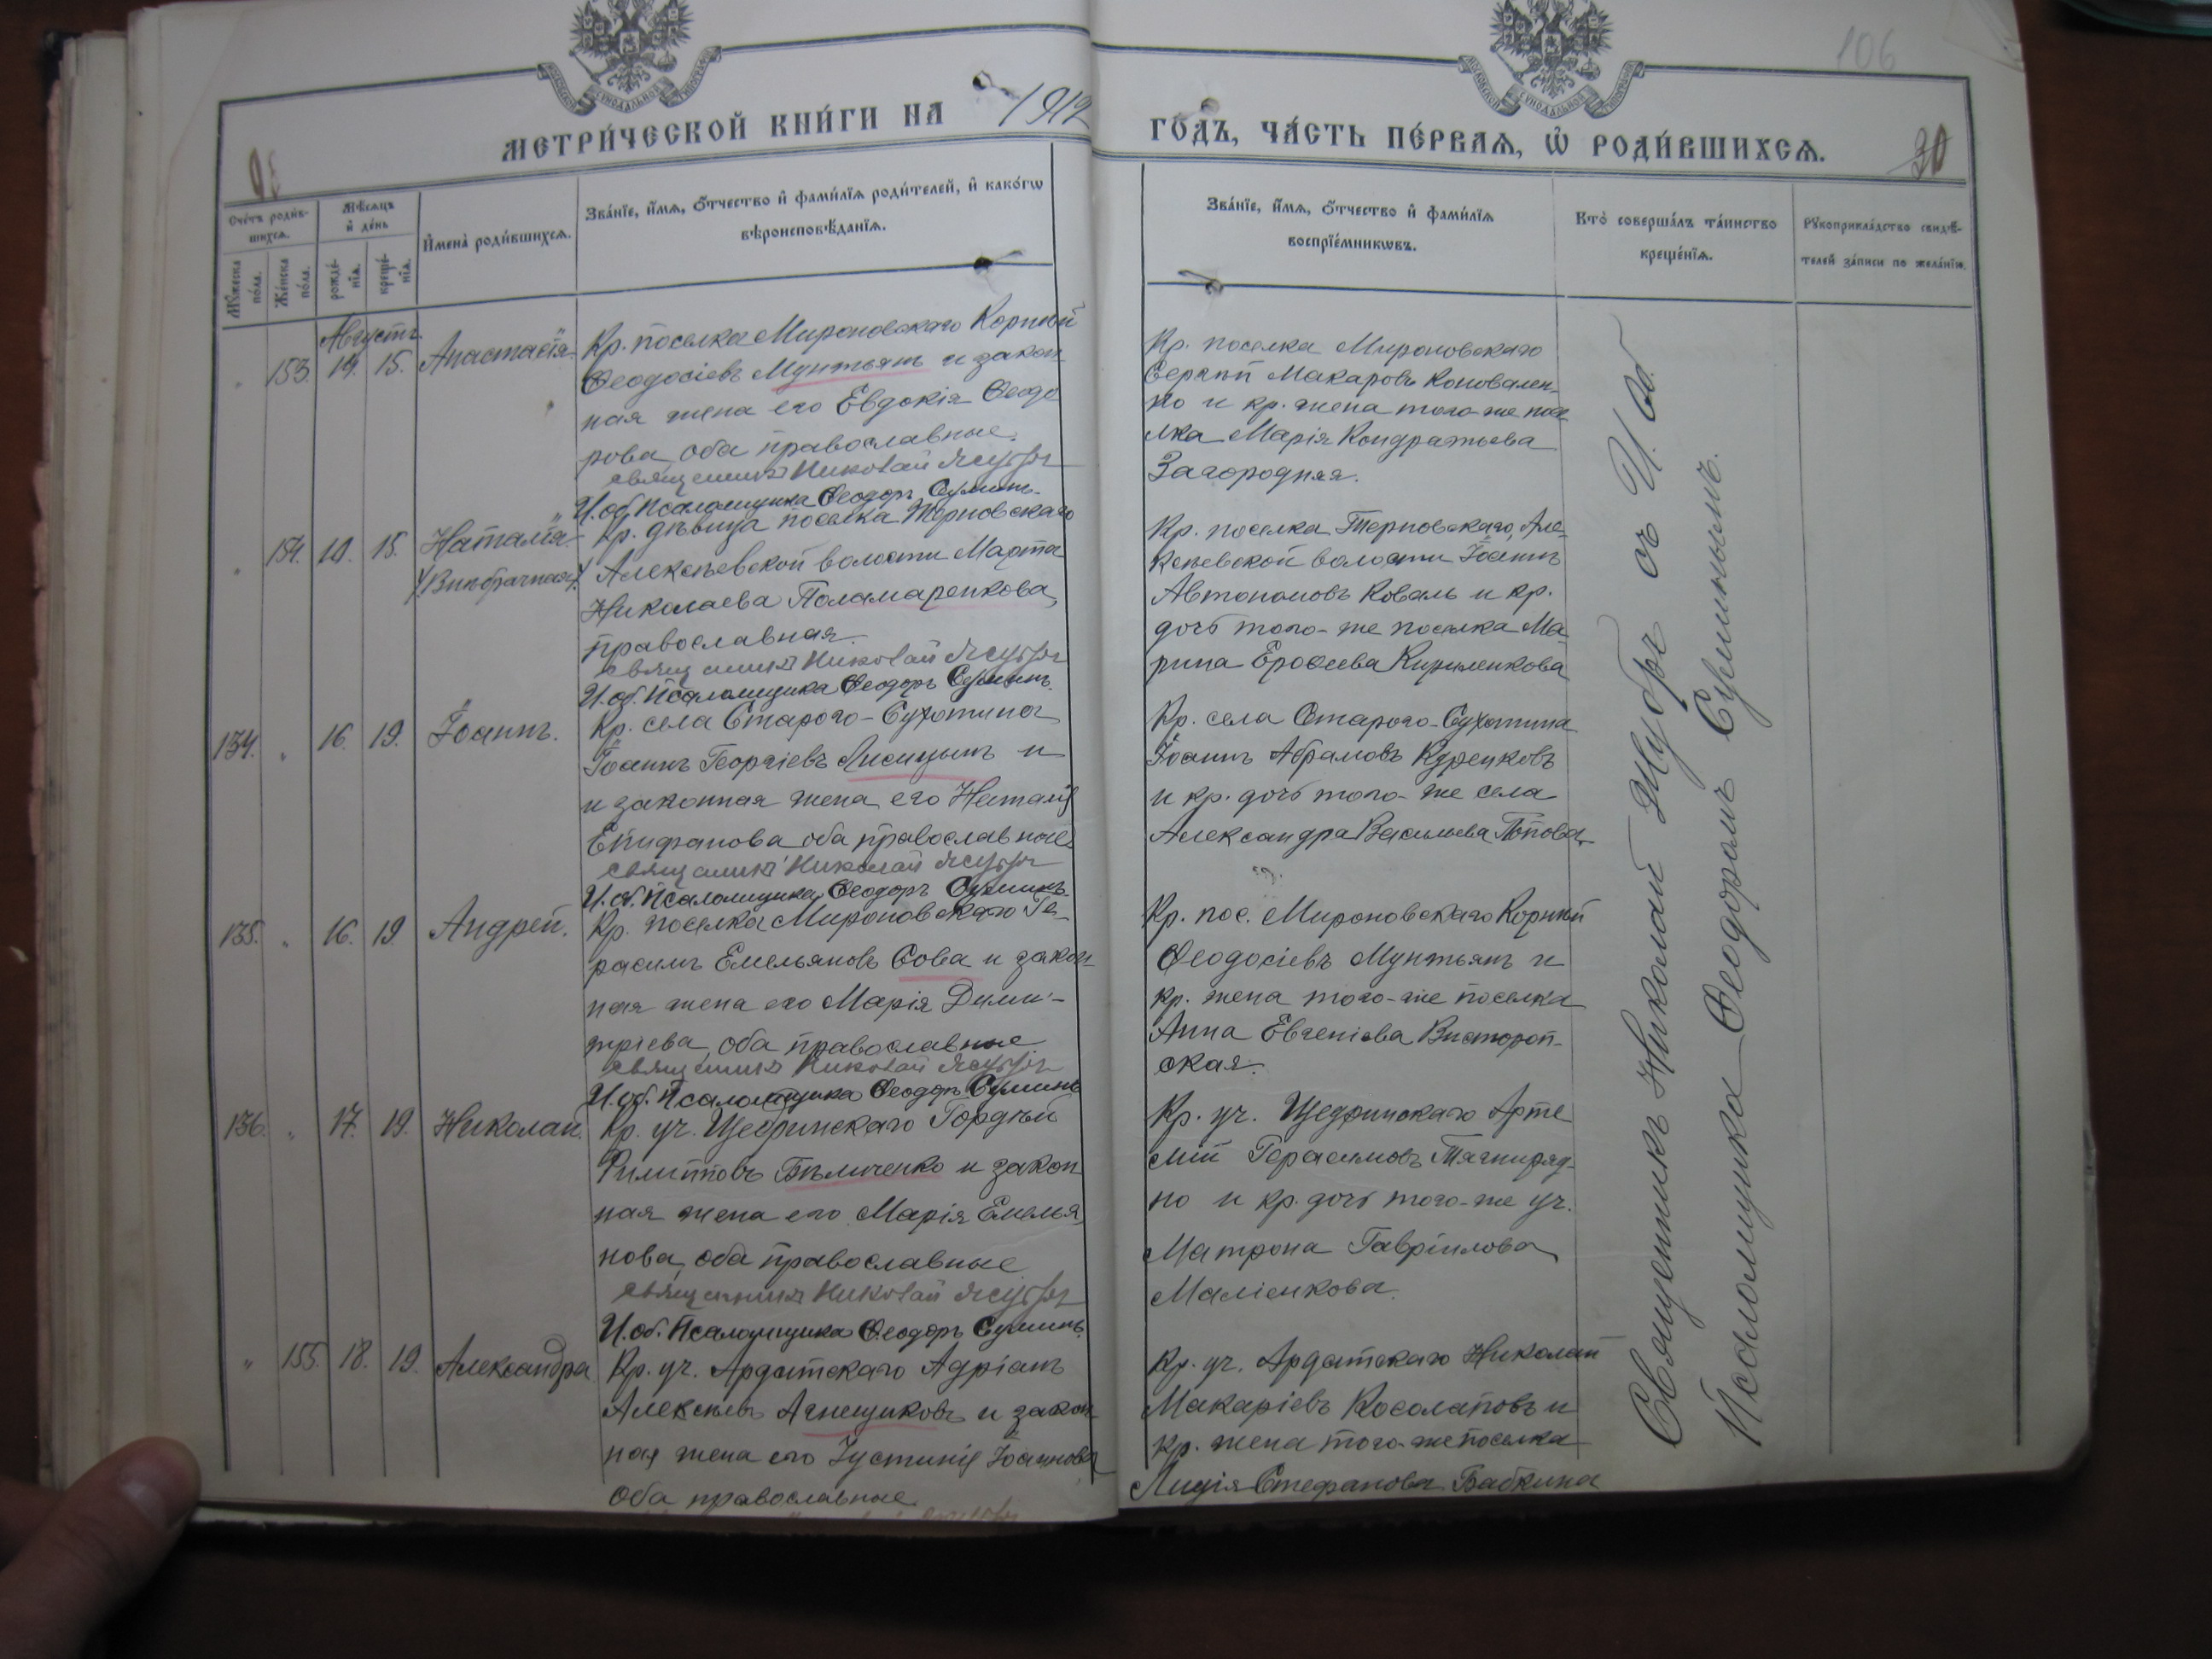 МЕТРИ́ЧЕСКОЙ КНИ́ГИ НА 1912
ГО́ДЪ, ЧА́СТЬ ПЕ́РВАЯ, Ѡ РОДИ́ВШИХСЯ.
106
30
Сче́тъ роди́в-
шихся.
Мѣ́сяцъ
и҆ де́нь
Мꙋ́жеска
по́ла.
Же́нска
по́ла.
рожде́-
нїя.
креще́-
нїя.
И҆мена̀ роди́вшихся.
Зва́нїе, и҆́мя, ѻ҆́тчество и҆ фами́лїя роди́телей, и҆ како́гѡ
вѣроисповѣ́данїя.
Зва́нїе, и҆́мя, ѻ҆́тчество и҆ фами́лїя
воспрїе́мникѡвъ.
Кто̀ соверша́лъ та́инство
креще́нїя.
Рꙋкоприкла́дство свидѣ́-
телей за́писи по жела́нїю.
Августъ
" 153. 14. 15. Анастасія.
Кр. поселка Мироновскаго Корнѣй
Ѳеодосіевъ Мунтьянъ и закон-
ная жена его Евдокія Ѳеодо
рова, оба православные.
священникъ Николай
И. об. Псаломщика Ѳеодоръ Сушинъ.
Кр. поселка Мироновскаго
Сергѣй Макаровъ Коновален-
ко и кр. жена того-же посе
лка Марія Кондратьева
Загородняя.
" 154. 10. 15. Наталія
(Внѣбрачная)
Кр. дѣвица поселка Терновскаго
Алексѣевской волости Марѳа
Николаева Паламаренкова,
православная.
священникъ Николай
И. об. Псаломщика Ѳеодоръ Сушинъ.
Кр. поселка Терновскаго, Але-
ксѣевской волости Іоаннъ
Автономовъ Коваль и кр.
дочь того-же поселка Ма-
рина Ероѳеева Кириленкова
134. " 16. 19. Іоаннъ.
Кр. села Старого-Сухотина
Іоаннъ Георгіевъ Лисицынъ и
и законная жена его Наталія
Епифанова оба православные
священникъ Николай
И. об. Псаломщика Ѳеодоръ Сушинъ.
Кр. села Старого-Сухотина
Іоаннъ Абрамовъ Кудренковъ
и кр. дочь того-же села
Александра Васильева Попова.
135. " 16. 19. Андрей.
Кр. поселка Мироновскаго Ге-
расимъ Емельяновъ Сова и закон-
ная жена его Марія Дими-
тріева, оба православные
священникъ Николай
И. об. Псаломщика Ѳеодоръ Сушинъ
Кр. пос. Мироновскаго Корнѣй
Ѳеодосіевъ Мунтьянъ и
кр. жена того-же поселка
Анна Евгеніева Вистороп-
ская.
136. " 17. 19. Николай.
Кр. уч. Щедринскаго Гордѣй
Филипповъ Бѣличенко и закон
ная жена его Марія Емелья
нова, оба православные
священникъ Николай
И. об. Псаломщика Ѳеодоръ Сушинъ.
Кр. уч. Щедринскаго Арте
мій Герасимовъ Тягниряд-
но и кр. дочь того-же уч.
Матрона Гавріилова
Маліенкова.
" 155. 18. 19. Александра
Кр. уч. Ардатскаго Адріанъ
Алексѣевъ Агнещиковъ и закон
ная жена его Іустинія Іоаннова
оба православные.
Кр. уч. Ардатскаго Николай
Макаріевъ Косолаповъ и
кр. жена того-же поселка
Лидія Стефанова Бабкина
Священникъ Николай съ И. об.
Псаломщика Ѳеодоромъ Сушинымъ.